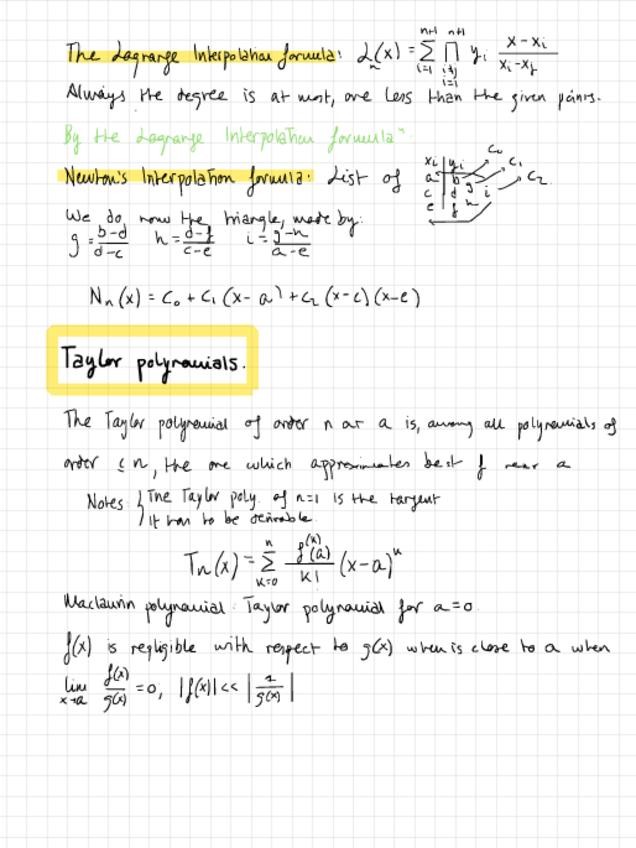 The Lagrange Interpolation formula: L_n(x) = ∑_{i=1}^{n+1} ∏_{i≠j, i=1}^{n+1} y_i (x-x_i)/(x_i-x_j)
Always the degree is at most, one less than the given points.
By the Lagrange Interpolation formula"
Newton's Interpolation formula: List of
x_i | y_i → C_0
a | b g → C_1
c | d i → C_2
e | f h
We do now the triangle, made by:
g = (b-d)/(d-c) h = (d-f)/(c-e) i = (g-h)/(a-e)
N_n(x) = C_0 + C_1 (x-a) + C_2 (x-c)(x-e)
Taylor polynomials.
The Taylor polynomial of order n at a is, among all polynomials of
order ≤ n, the one which approximates best f near a
Notes { The Taylor poly. of n=1 is the tangent
It has to be derivable.
T_n(x) = ∑_{k=0}^{n} f^{(k)}(a)/k! (x-a)^k
Maclaurin polynomial: Taylor polynomial for a=0.
f(x) is negligible with respect to g(x) when is close to a when
lim_{x→a} f(x)/g(x) = 0, |f(x)| << |1/g(x)|